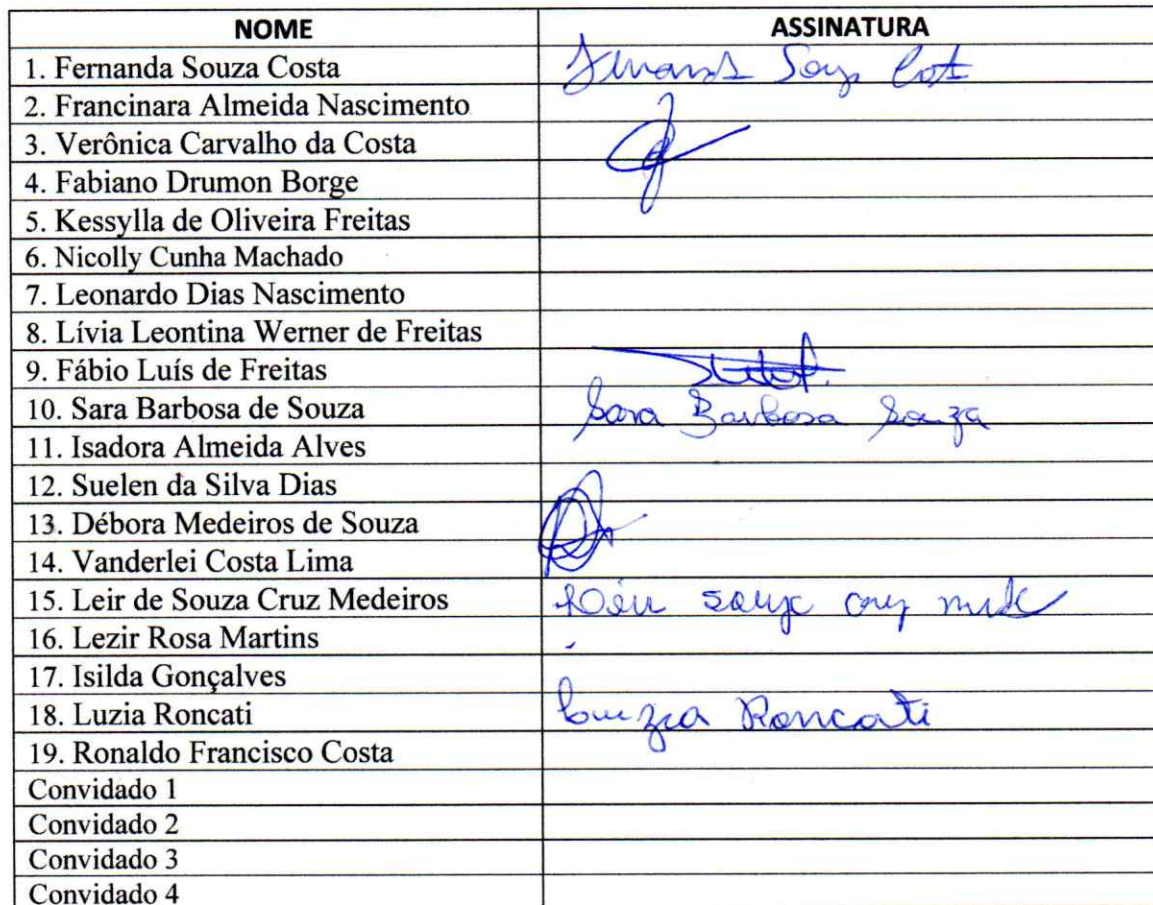 NOME ASSINATURA
1. Fernanda Souza Costa
2. Francinara Almeida Nascimento
3. Verônica Carvalho da Costa
4. Fabiano Drumon Borge
5. Kessylla de Oliveira Freitas
6. Nicolly Cunha Machado
7. Leonardo Dias Nascimento
8. Lívia Leontina Werner de Freitas
9. Fábio Luís de Freitas
10. Sara Barbosa de Souza Sara Barbosa Souza
11. Isadora Almeida Alves
12. Suelen da Silva Dias
13. Débora Medeiros de Souza
14. Vanderlei Costa Lima
15. Leir de Souza Cruz Medeiros
16. Lezir Rosa Martins
17. Isilda Gonçalves
18. Luzia Roncati Luzia Roncati
19. Ronaldo Francisco Costa
Convidado 1
Convidado 2
Convidado 3
Convidado 4